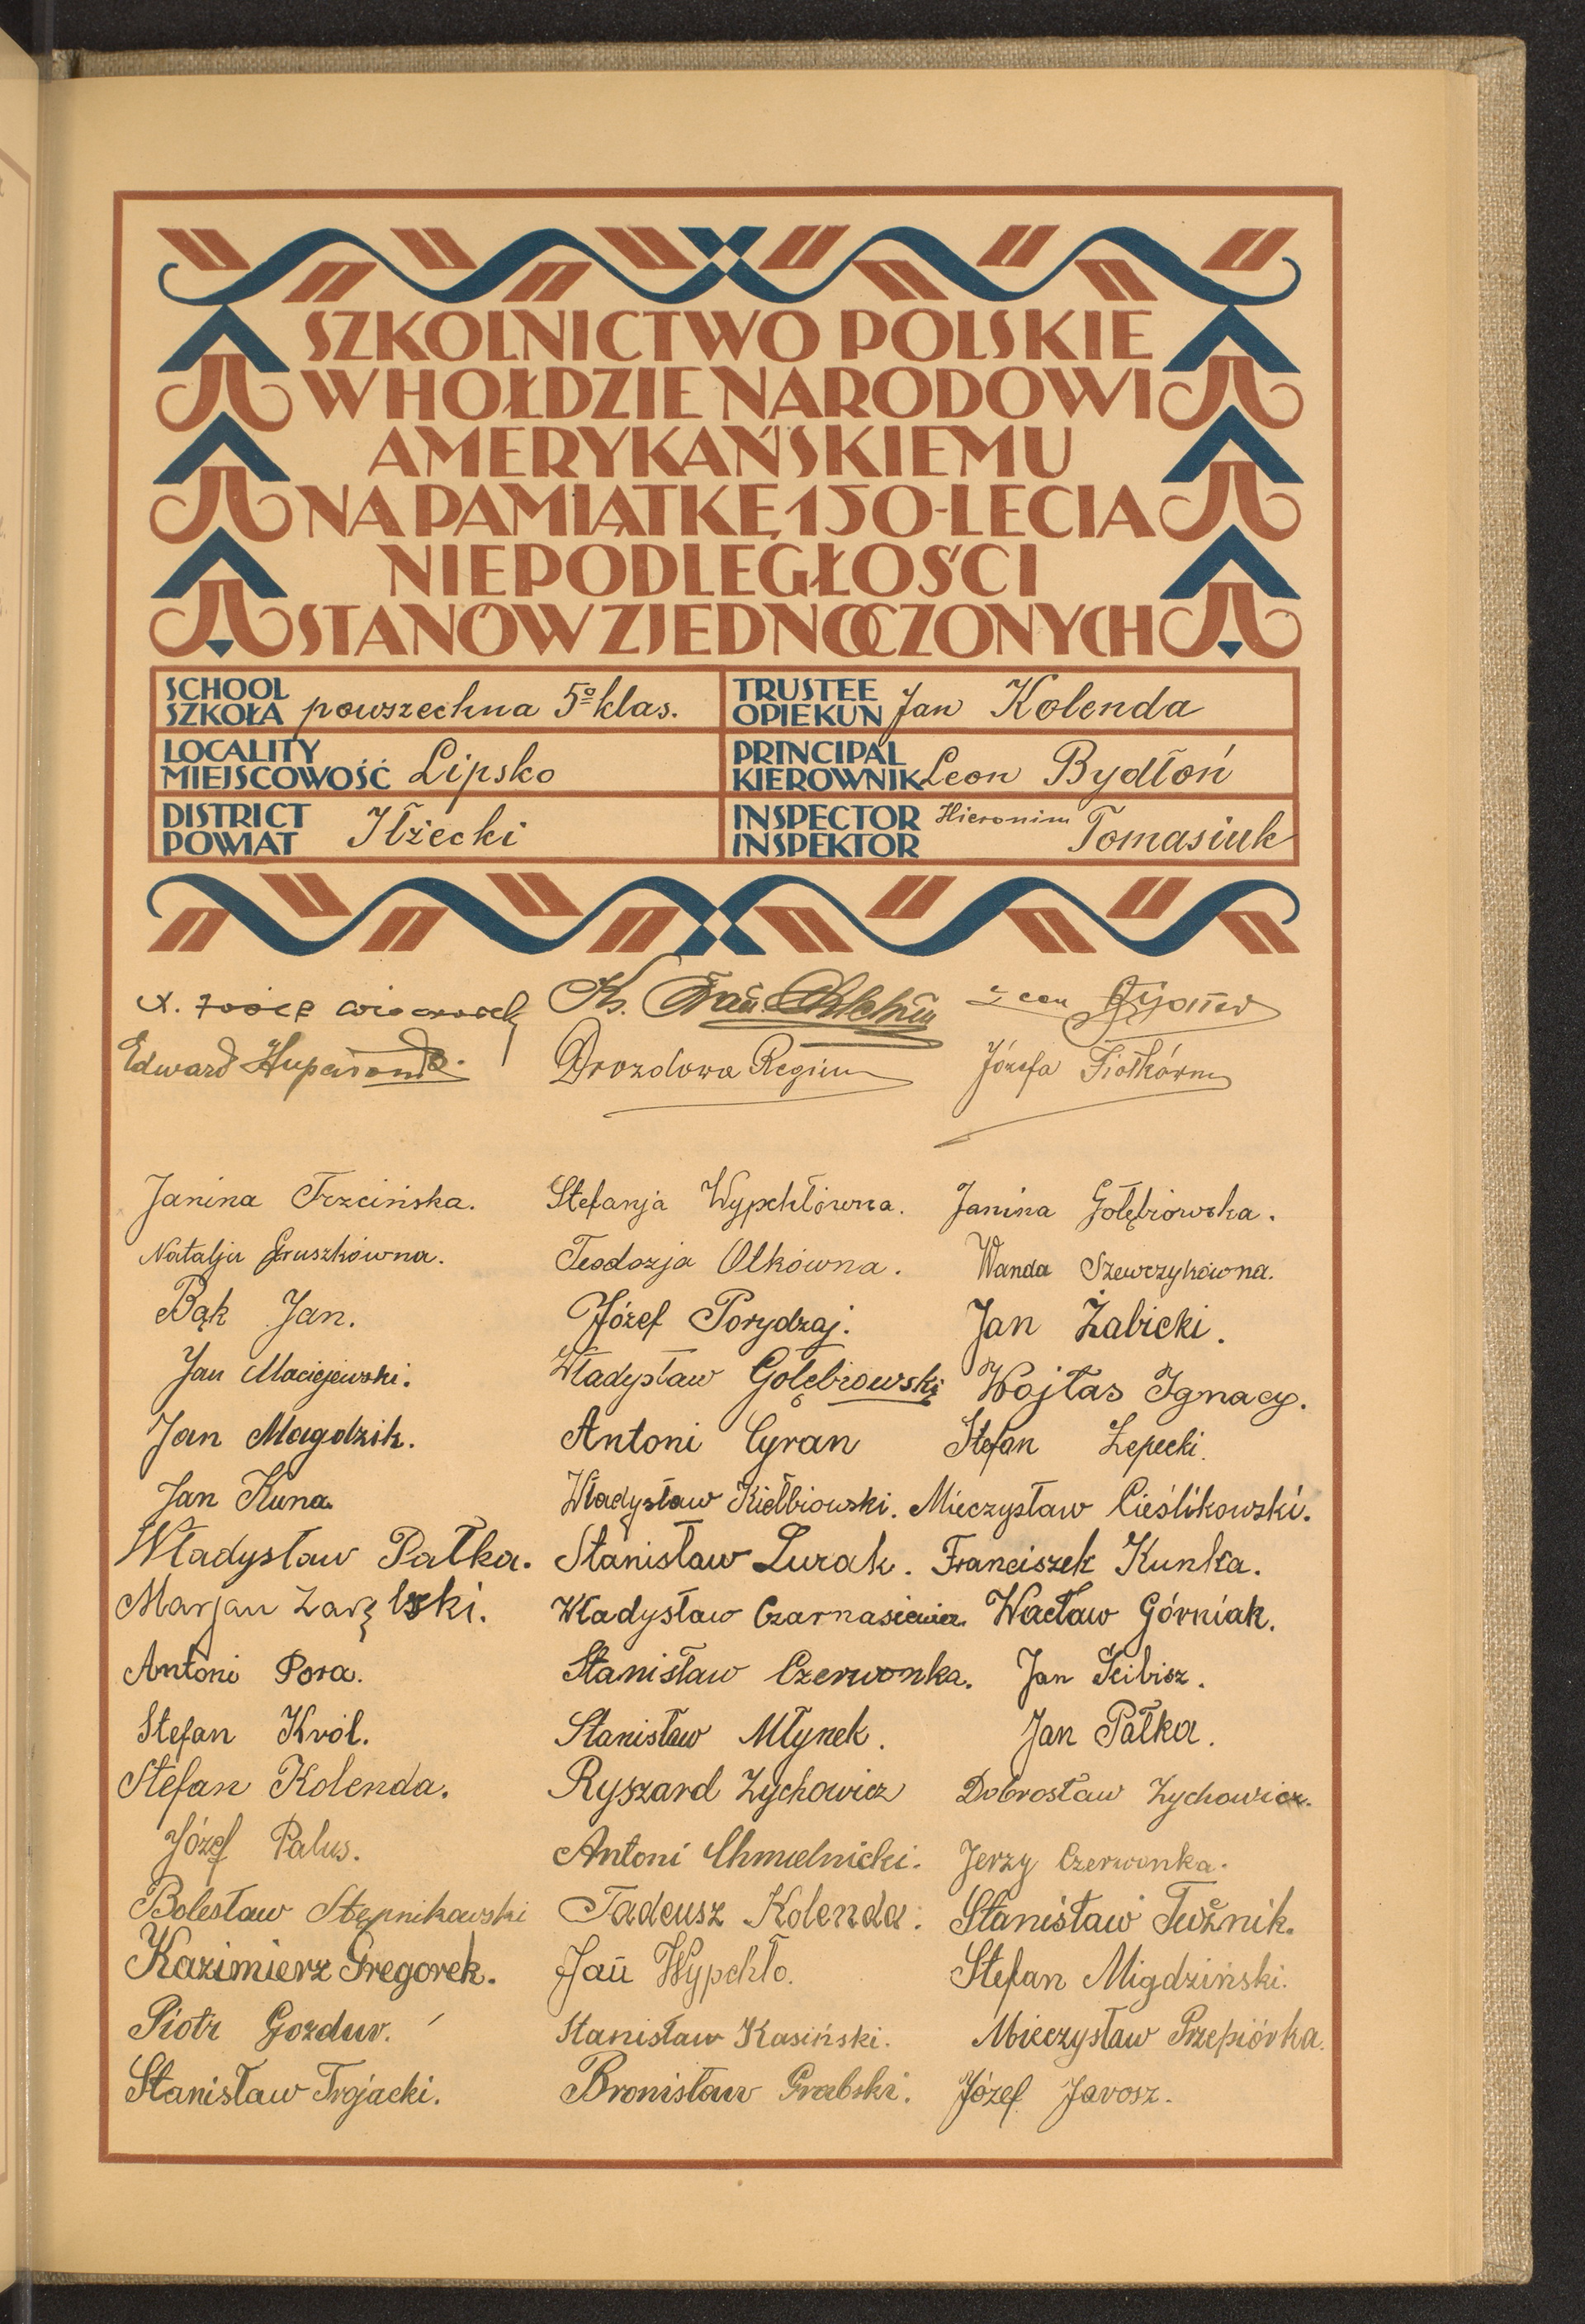 SZKOLNICTWO POLSKIE
W HOŁDZIE NARODOWI
AMERYKAŃSKIEMU
NA PAMIĄTKĘ 150-LECIA
NIEPODLEGŁOŚCI
STANÓW ZJEDNOCZONYCH
SCHOOL
SZKOŁA powszechna 5º klas.
TRUSTEE
OPIEKUN Jan Kolenda
LOCALITY
MIEJSCOWOŚĆ Lipsko
PRINCIPAL
KIEROWNIK Leon Bydłoń
DISTRICT
POWIAT Iłżecki
INSPECTOR Hieronim
INSPEKTOR Tomasiuk
X. Ks. Leon
Edward Drozdowa Regina Józefa Fiołkówna
Janina Trzcińska. Stefanja Wypchłówna. Janina Gołębiowska.
Natalja Gruszkówna. Teodozja Olkówna. Wanda Szewczykówna.
Bąk Jan. Józef Porydzaj. Jan Żabicki.
Jan Maciejewski. Władysław Gołębiowski Wojtas Ignacy.
Jan Magdzik. Antoni Cyran Stefan Łepecki.
Jan Kuna. Władysław Kiełbiowski. Mieczysław Cieślikowski.
Władysław Pałka. Stanisław Lurak. Franciszek Kunka.
Marjan Zaręlski. Władysław Czarnasiewicz. Wacław Górniak.
Antoni Pora. Stanisław Czerwonka. Jan Ścibisz.
Stefan Król. Stanisław Młynek. Jan Pałka.
Stefan Kolenda. Ryszard Zychowicz Dobrosław Zychowicz.
Józef Palus. Antoni Chmielnicki. Jerzy Czerwonka.
Bolesław Stępnikowski Tadeusz Kolenda. Stanisław Tużnik.
Kazimierz Gregorek. Jan Wypchło. Stefan Migdziński.
Piotr Gozdur. Stanisław Kasiński. Mieczysław Przepiórka.
Stanisław Trojacki. Bronisław Grabski. Józef Jarosz.